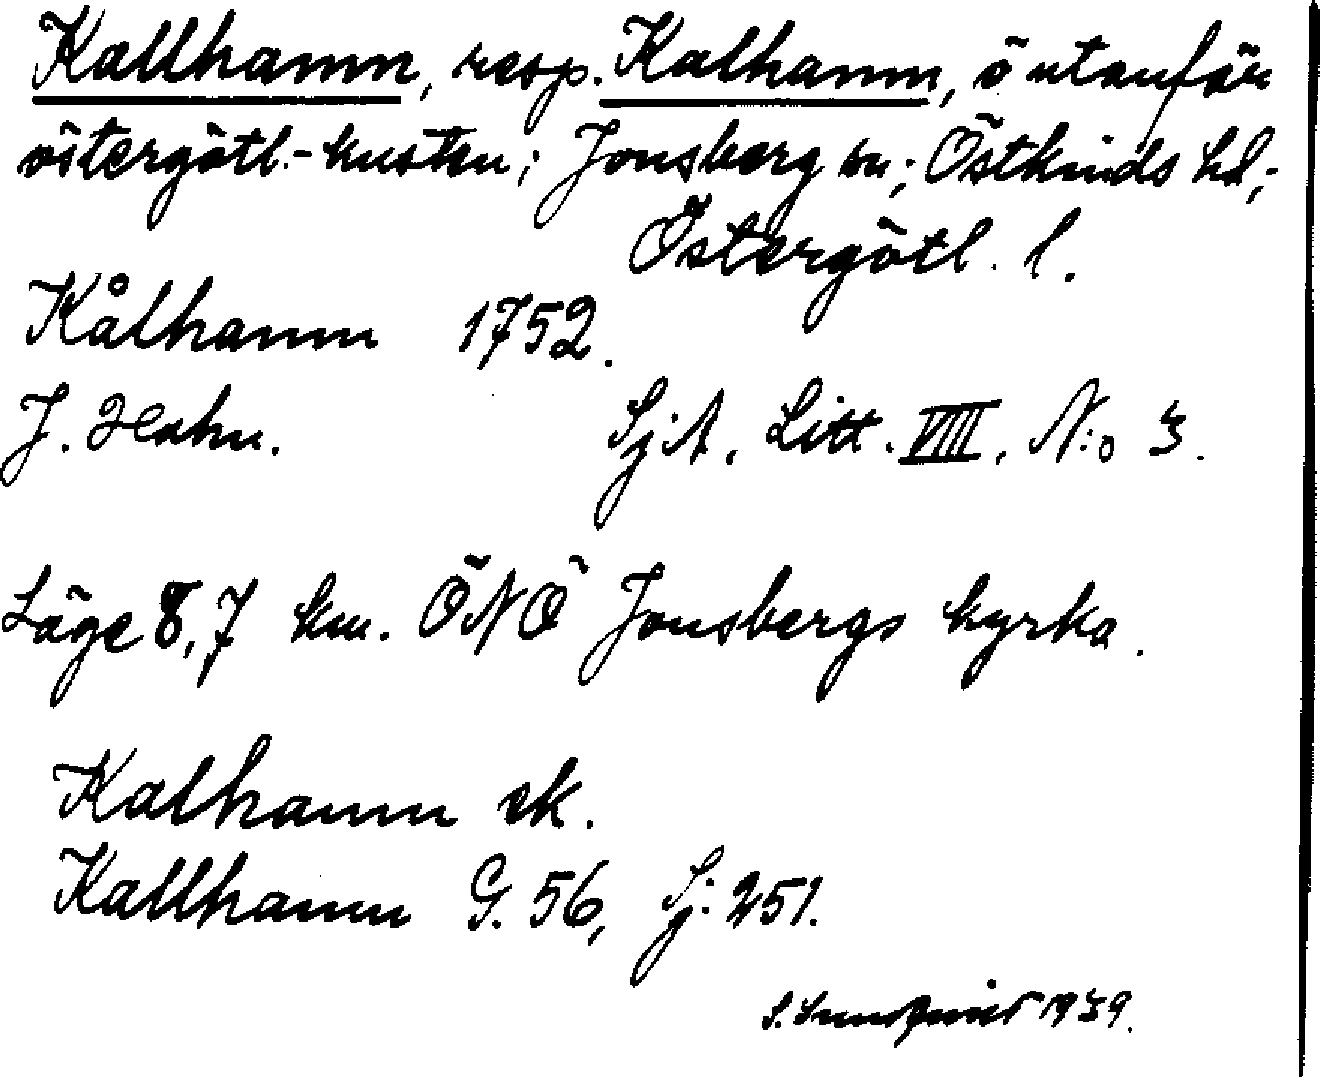 Kallhamn, resp. Kalhamn, ö utanför
östergötl.-kusten; Jonsberg sn; Östkinds hd,
Östergötl. l.
Kålhamn 1752.
J. Hahn. Sj:A. Litt. VIII. N:o 3.
Läge 8,7 km. ÖNÖ Jonsbergs kyrka.
Kalhamn ek.
Kallhamn G. 56, Sj: 251.
S. 1939.